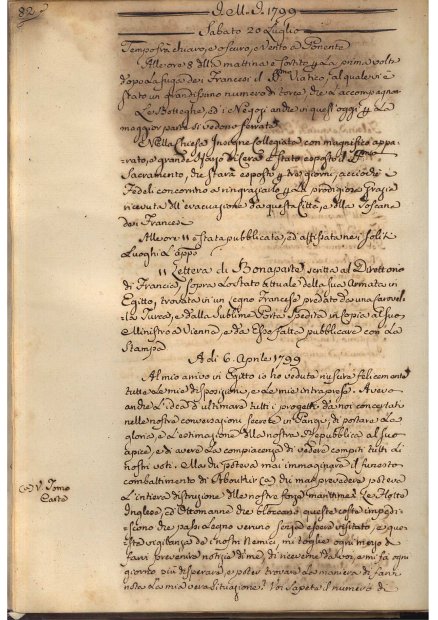 82.
A. M. D. 1799
Sabato 20 Luglio
Tempo frà chiaro, e oscuro, e vento a Ponente
Alle ore 8 della mattina è sortito la prima volta
dopo la fuga dei Francesi il Viatico, al quale vi è
stato un grandissimo numero di torce, che l'accompagna
Le Botteghe, ed i Negozi anche in quest'oggi la
maggior parte si vedono serrate
Nella Chiesa Insigne Collegiata con magnifico appa-
rato, e grande sfarzo di Cera è stato esposto il
Sacramento, che starà esposto tre giorni, acciò i
Fedeli concorrino a ringraziarlo la prodigiosa Grazia
ricevuta dell'evacuazione da questa Città, e della Toscana
dei Francesi
Alle ore 11 è stata pubblicata, ed affissata nei soliti
Luoghi la app.
11 Lettera di Bonaparte scritta al Direttorio
di Francia, sopra lo stato attuale della sua Armata in
Egitto, trovata in un Legno Francese predato da una Caravel-
la Turca, e dalla Sublime Porta spedita in Copia al suo
Ministro a Vienna, e da Esso fatta pubblicare con la
Stampa
A di 6. Aprile 1799
Al mio arrivo in Egitto io ho veduto riuscire felicemente
tutte le mie disposizioni, e le mie intraprese. Avevo
anche l'idea d'ultimare tutti i progetti da noi concertati
nelle nostre conversazioni secrete in Parigi; di portare la
gloria, e l'estimazione della nostra Repubblica al suo
apice, e di avere la compiacenza di vedere compiti tutti li
nostri voti. Ella dispoteva mai immaginarsi il funesto
combattimento di Aboukir (a) chi mai prevedere poteva
l'intiera distruzione delle nostre forze marittime? Le Flotte
Inglese, ed Ottomanne che bloccano queste coste impedi-
scono che passi Legno veruno senza essere visitato, e que-
sta vigilanza de i nostri Nemici mi toglie ogni mezzo di
farvi prevenire notizie di me, di riceverne da voi, e mi fa ogni
giorno più disperare, e poter trovare la maniera di farvi
nota la mia vera situazione. Voi sapete il numero di
(a) V. Tomo
Carte